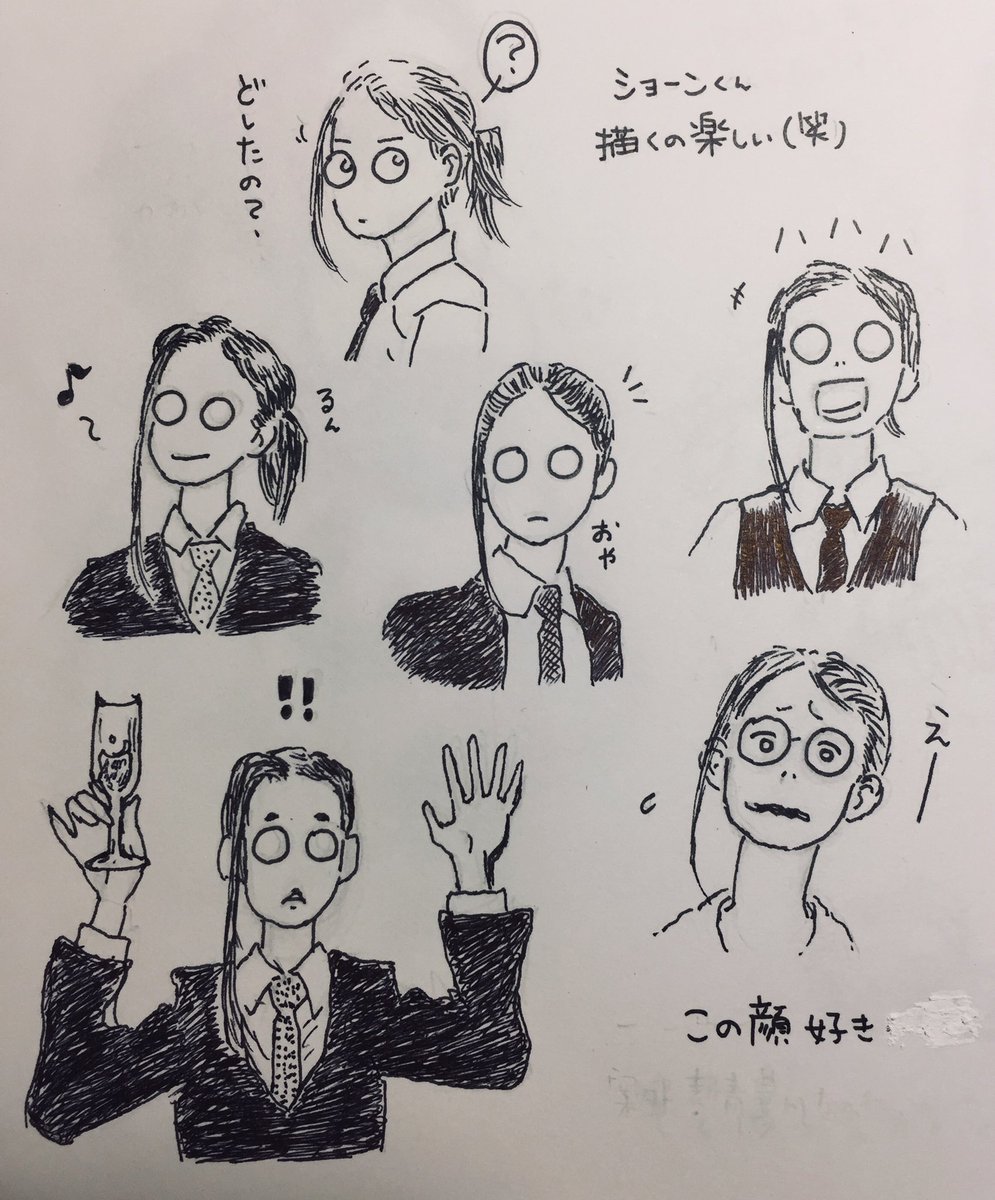 ショーンくん
描くの楽しい(笑)
?
どしたの?
るん
おや
!!
え゛ー
この顔 好き